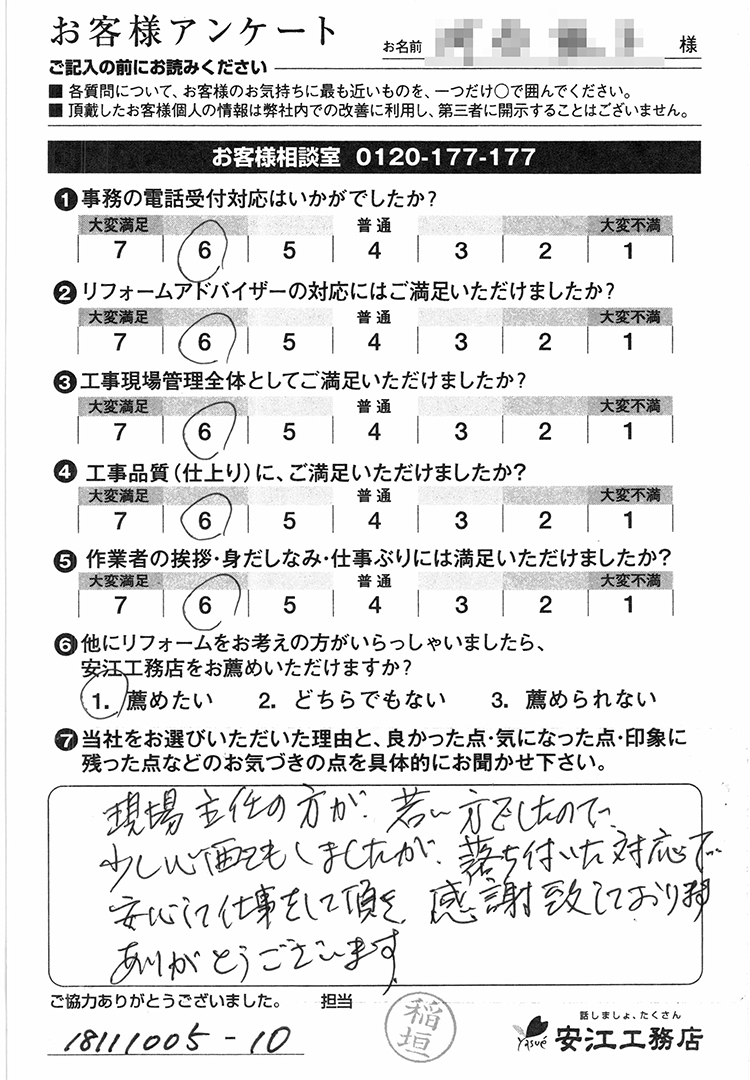 お客様アンケート
お名前 様
ご記入の前にお読みください
■ 各質問について、お客様のお気持ちに最も近いものを、一つだけ〇で囲んでください。
■ 頂戴したお客様個人の情報は弊社内での改善に利用し、第三者に開示することはございません。
お客様相談室 0120-177-177
❶事務の電話受付対応はいかがでしたか?
大変満足 普通 大変不満
7 6 5 4 3 2 1
❷リフォームアドバイザーの対応にはご満足いただけましたか?
大変満足 普通 大変不満
7 6 5 4 3 2 1
❸工事現場管理全体としてご満足いただけましたか?
大変満足 普通 大変不満
7 6 5 4 3 2 1
❹工事品質(仕上り)に、ご満足いただけましたか?
大変満足 普通 大変不満
7 6 5 4 3 2 1
❺作業者の挨拶・身だしなみ・仕事ぶりには満足いただけましたか?
大変満足 普通 大変不満
7 6 5 4 3 2 1
❻他にリフォームをお考えの方がいらっしゃいましたら、
安江工務店をお薦めいただけますか?
1. 薦めたい 2. どちらでもない 3. 薦められない
❼当社をお選びいただいた理由と、良かった点・気になった点・印象に
残った点などのお気づきの点を具体的にお聞かせ下さい。
現場主任の方が、若い方でしたので、
少し心配もしましたが、落ち付いた対応で
安心して仕事をして頂き、感謝致しております
ありがとうございます
ご協力ありがとうございました。 担当
稲垣
18111005-10
話しましょ、たくさん
Yasue 安江工務店